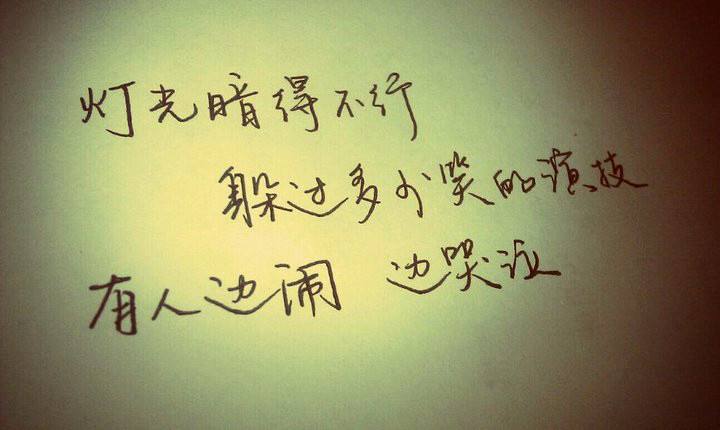 灯光暗得不行
躲过多少笑的演技
有人边闹 边哭泣